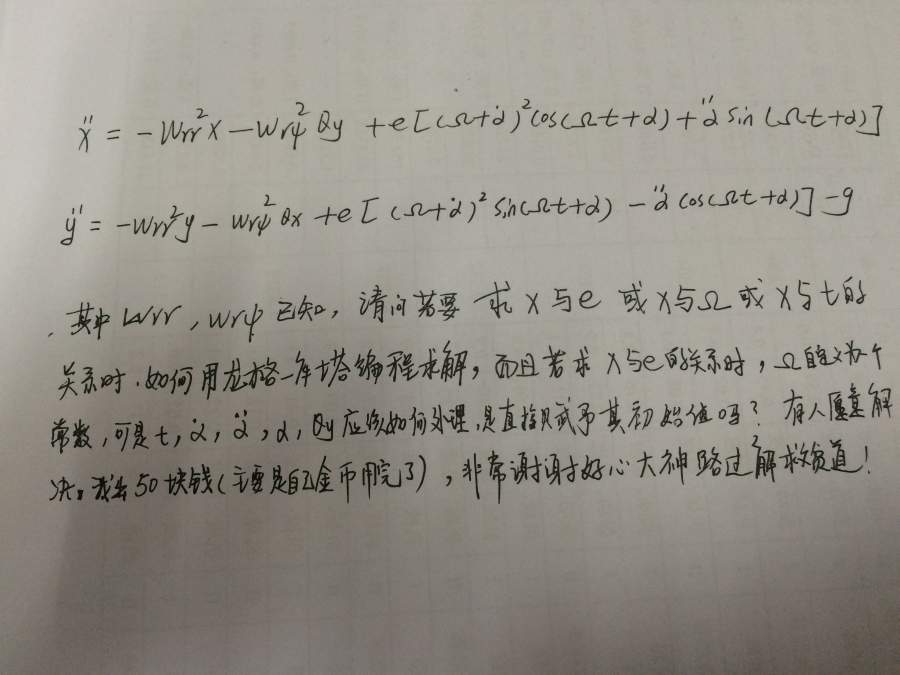 ẍ = -Wrr²x - Wrψ²θy + e[(Ω+α̇)²cos(Ωt+α) + α̈ sin(Ωt+α)]
ÿ = -Wrr²y - Wrψ²θx + e[(Ω+α̇)²sin(Ωt+α) - α̈ cos(Ωt+α)] - g
. 其中 Wrr, Wrψ 已知, 请问若要 求 X与e 或 X与Ω 或 X与t的
关系时. 如何用龙格-库塔编程求解, 而且若求 X与e的关系时, Ω自定义为个
常数, 可是 t, α̇, α̈, α, θy 应该如何处理, 是直接赋予其初始值吗? 有人愿意解
决. 我出50块钱(主要是自己金币用完了), 非常谢谢好心大神路过解救贫道!